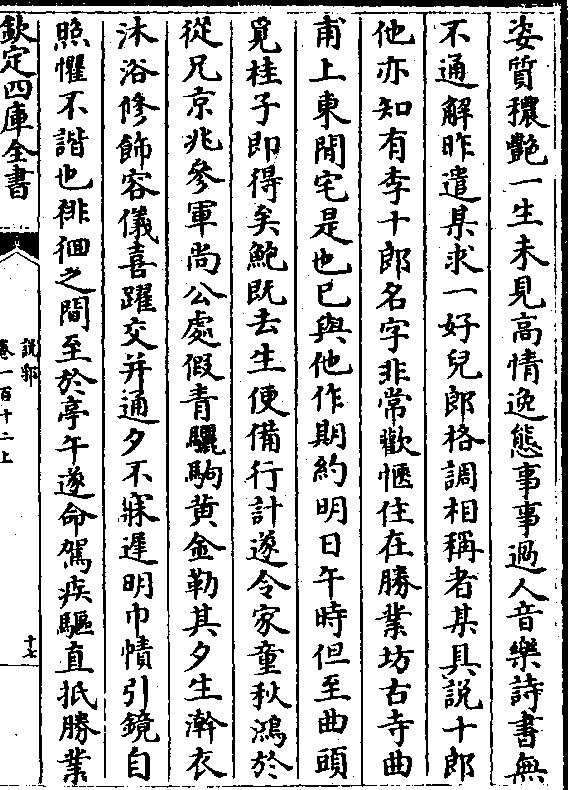 姿質穠艶一生未見高情逸態事事過人音樂詩書無
不通解昨遣某求一好兒郎格調相稱者某具說十郎
他亦知有李十郎名字非常歡愜住在勝業坊古寺曲
甫上東閒宅是也已與他作期約明日午時但至曲頭
覓桂子即得矣鮑既去生便備行計遂令家童秋鴻於
從兄京兆參軍尚公處假青驪駒黄金勒其夕生澣衣
沐浴修飾容儀喜躍交并通夕不寐遲明巾幘引鏡自
照懼不諧也徘徊之間至於亭午遂命駕疾驅直抵勝業
欽定四庫全書
說郛
卷一百十二上
十七